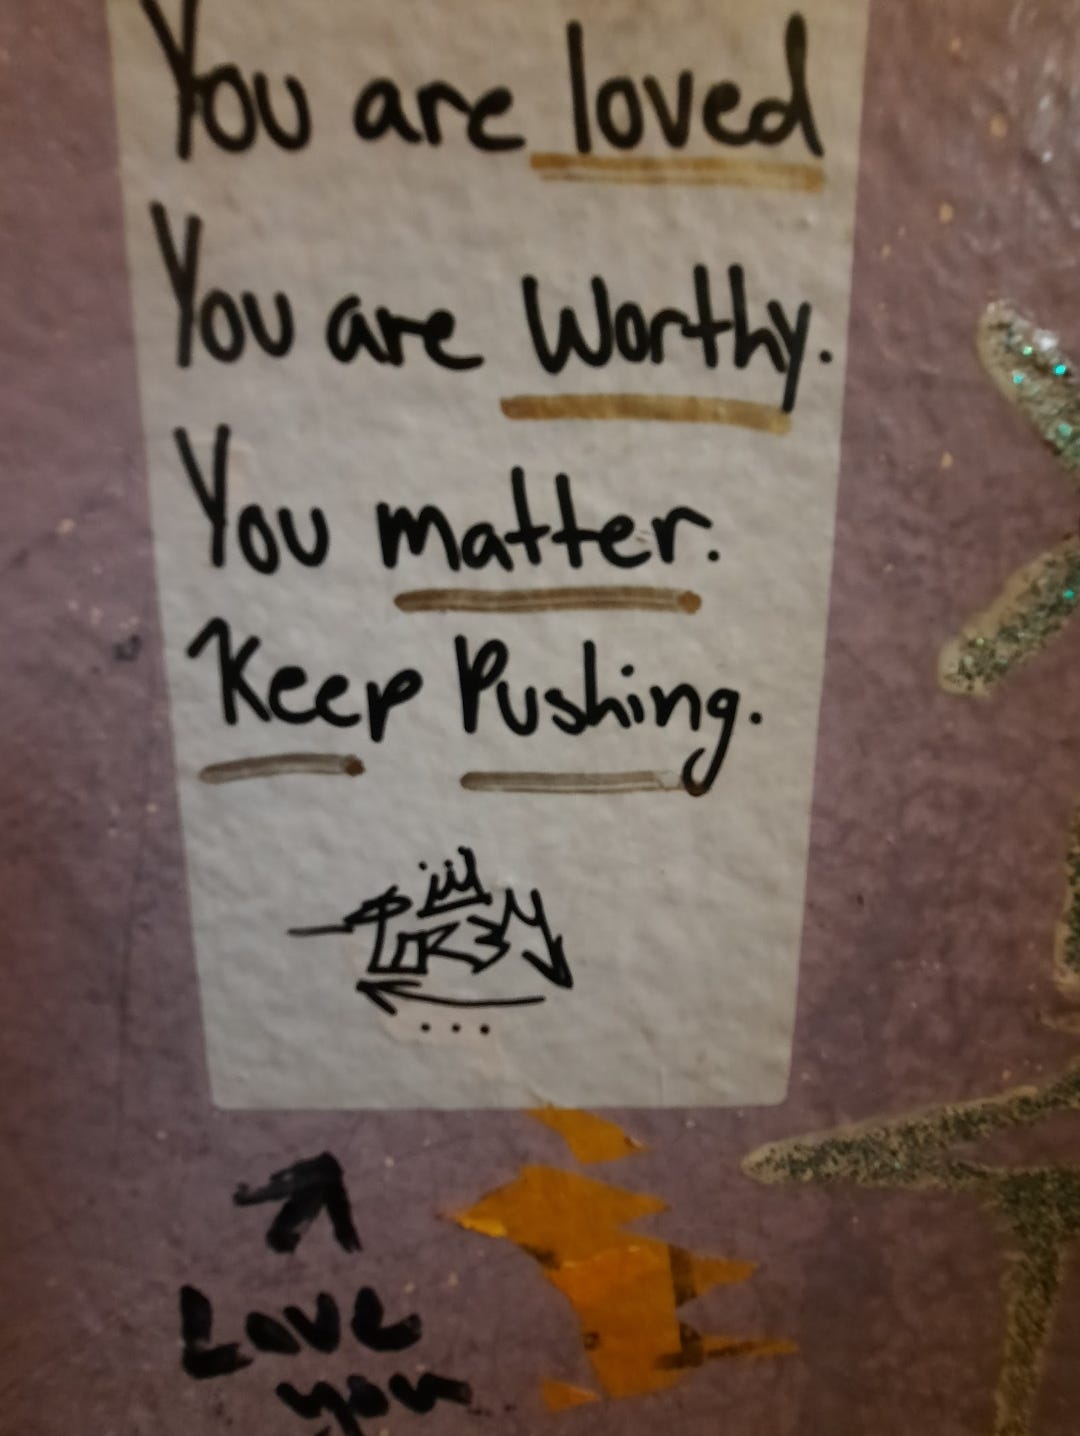 You are loved
You are Worthy.
You matter.
Keep Pushing.
Love
you